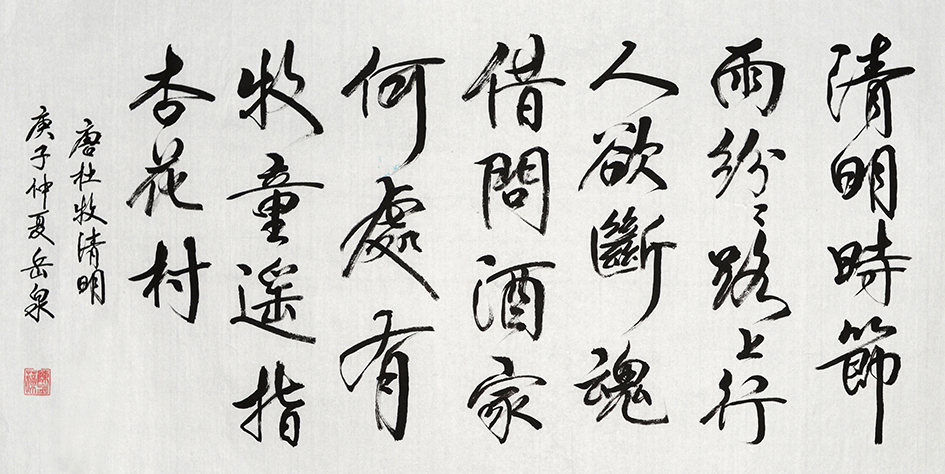 清明時節
雨紛〻路上行
人欲斷魂
借問酒家
何處有
牧童遥指
杏花村
唐杜牧清明
庚子仲夏岳泉